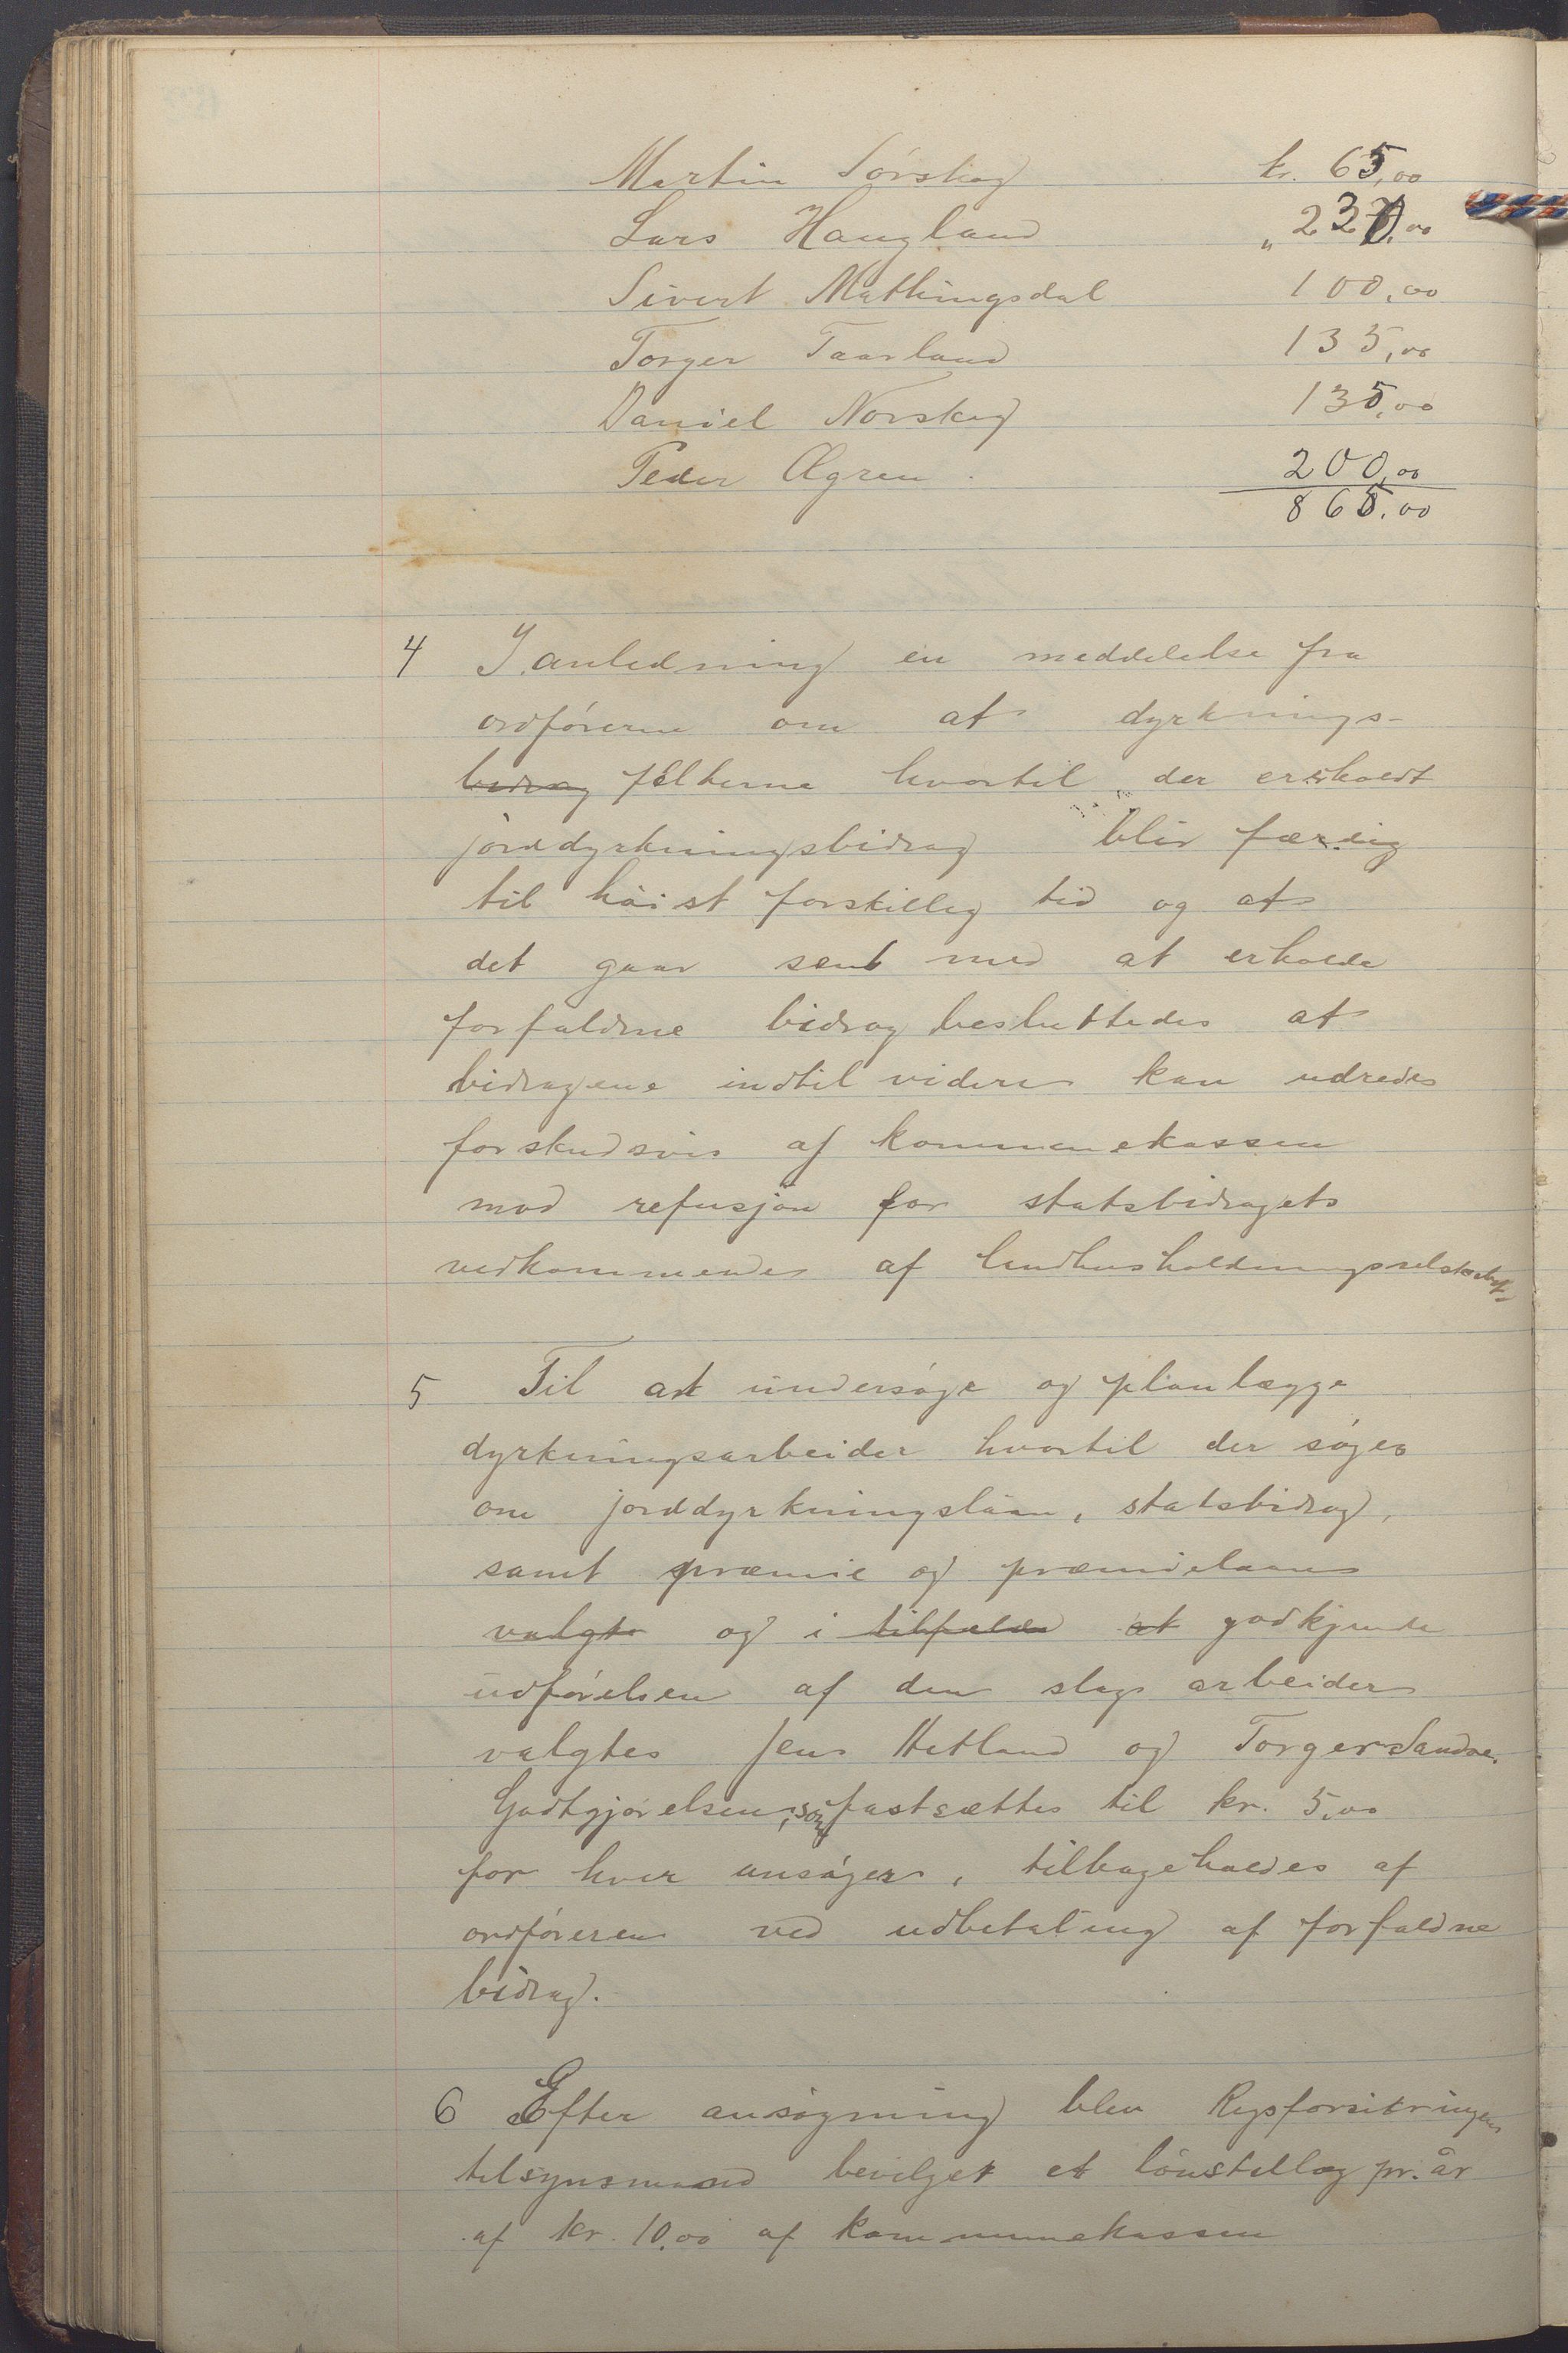 Martin Sørskog kr. 65,00
Lars Haugland " 230,00
Sivert Mathingsdal 100,00
Torger Taarland 135,00
Daniel Norskog 135,00
Peder Øgren. 200,00
865,00
4 I anledning en meddelelse fra
ordføreren om at dyrknings-
bidrag felterne hvortil der er erholdt
jorddyrkningsbidrag blir færdig
til høist forskillig tid og at
det gaar sent med at erholde
forfaldne bidrag besluttedes at
bidragene indtil videre kan udredes
forskudsvis af kommunekassen
mod refusjon for statsbidragets
vedkommende af landhusholdningsselskabet
5 Til at undersøge og planlægge
dyrkningsarbeider hvortil der søges
om jorddyrkningslaan, statsbidrag,
samt præmie og præmielaan
valgte og i tilfælde at godkjende
udførelsen af den slags arbeider
valgtes Jens Hetland og Torger Sandve.
Godtgjørelsen, som fastsættes til kr. 5,00
for hver ansøger, tilbageholdes af
ordføreren ved udbetaling af forfaldne
bidrag.
6 Efter ansøgning blev Rygsforsikringens
tilsynsmand bevilget et lønstillæg pr. år
af kr. 10,00 af kommunekassen